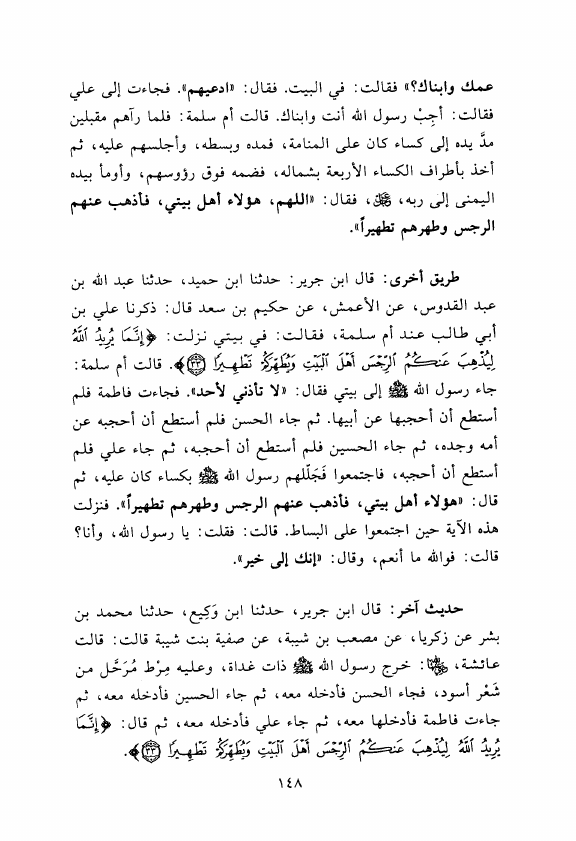 عمك وابناك؟» فقالت: في البيت. فقال: «ادعيهم». فجاءت إلى علي
فقالت: أجِبْ رسول الله أنت وابناك. قالت أم سلمة: فلما رآهم مقبلين
مدَّ يده إلى كساء كان على المنامة، فمده وبسطه، وأجلسهم عليه، ثم
أخذ بأطراف الكساء الأربعة بشماله، فضمه فوق رؤوسهم، وأومأ بيده
اليمنى إلى ربه، ﷺ، فقال: «اللهم، هؤلاء أهل بيتي، فأذهب عنهم
الرجس وطهرهم تطهيراً».
طريق أخرى: قال ابن جرير: حدثنا ابن حميد، حدثنا عبد الله بن
عبد القدوس، عن الأعمش، عن حكيم بن سعد قال: ذكرنا علي بن
أبي طالب عند أم سلمة، فقالت: في بيتي نزلت: ﴿إِنَّمَا يُرِيدُ اللَّهُ
لِيُذْهِبَ عَنكُمُ الرِّجْسَ أَهْلَ الْبَيْتِ وَيُطَهِّرَكُمْ تَطْهِيرًا ٣٣﴾. قالت أم سلمة:
جاء رسول الله ﷺ إلى بيتي فقال: «لا تأذني لأحد». فجاءت فاطمة فلم
أستطع أن أحجبها عن أبيها. ثم جاء الحسن فلم أستطع أن أحجبه عن
أمه وجده، ثم جاء الحسين فلم أستطع أن أحجبه، ثم جاء علي فلم
أستطع أن أحجبه، فاجتمعوا فَجَلّلهم رسول الله ﷺ بكساء كان عليه، ثم
قال: «هؤلاء أهل بيتي، فأذهب عنهم الرجس وطهرهم تطهيراً». فنزلت
هذه الآية حين اجتمعوا على البساط. قالت: فقلت: يا رسول الله، وأنا؟
قالت: فوالله ما أنعم، وقال: «إنك إلى خير».
حديث آخر: قال ابن جرير، حدثنا ابن وَكِيع، حدثنا محمد بن
بشر عن زكريا، عن مصعب بن شيبة، عن صفية بنت شيبة قالت: قالت
عائشة، رضي الله عنها: خرج رسول الله ﷺ ذات غداة، وعليه مِرْط مُرَحَّل من
شَعْر أسود، فجاء الحسن فأدخله معه، ثم جاء الحسين فأدخله معه، ثم
جاءت فاطمة فأدخلها معه، ثم جاء علي فأدخله معه، ثم قال: ﴿إِنَّمَا
يُرِيدُ اللَّهُ لِيُذْهِبَ عَنكُمُ الرِّجْسَ أَهْلَ الْبَيْتِ وَيُطَهِّرَكُمْ تَطْهِيرًا ٣٣﴾.
١٤٨